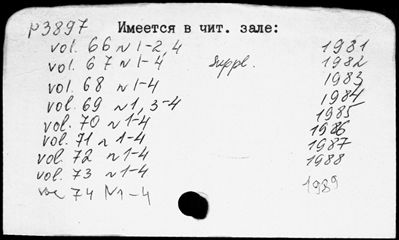 р3897 Имеется в чит. зале:
vol. 66 N 1-2, 4 1981
vol. 67 N 1-4 Suppl. 1982
vol. 68 N 1-4 1983
vol. 69 N 1, 3-4 1984
vol. 70 N 1-4 1985
vol. 71 N 1-4 1986
vol. 72 N 1-4 1987
vol. 73 N 1-4 1988
74 N 1-4 1989